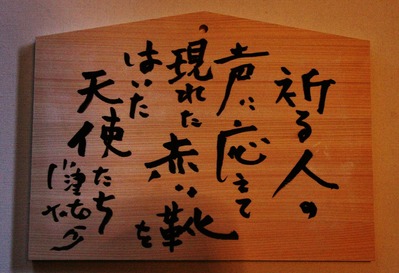 祈る人の
声に応えて
現れた赤い靴を
はいた
天使たち